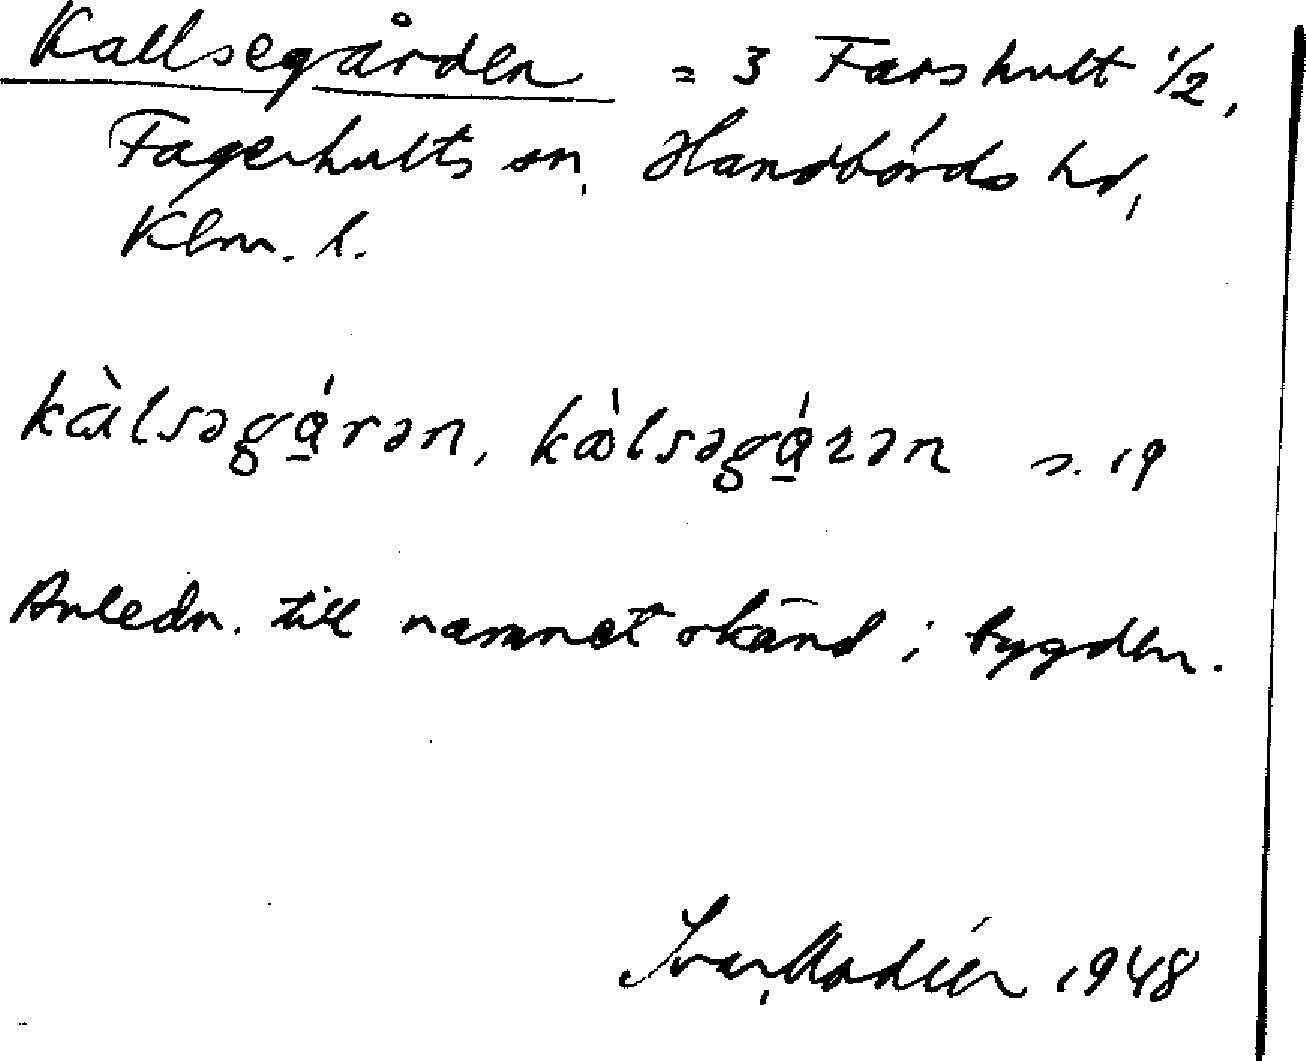 Kallsegården = 3 Farshult 1/2,
Fagerhults sn, Handbörds hd,
Klm. l.
kàlsəgá̱rən, kòlsəgá̱rən s. 19
Anledn. till namnet okänd i bygden.
Ivar Modéer 1948